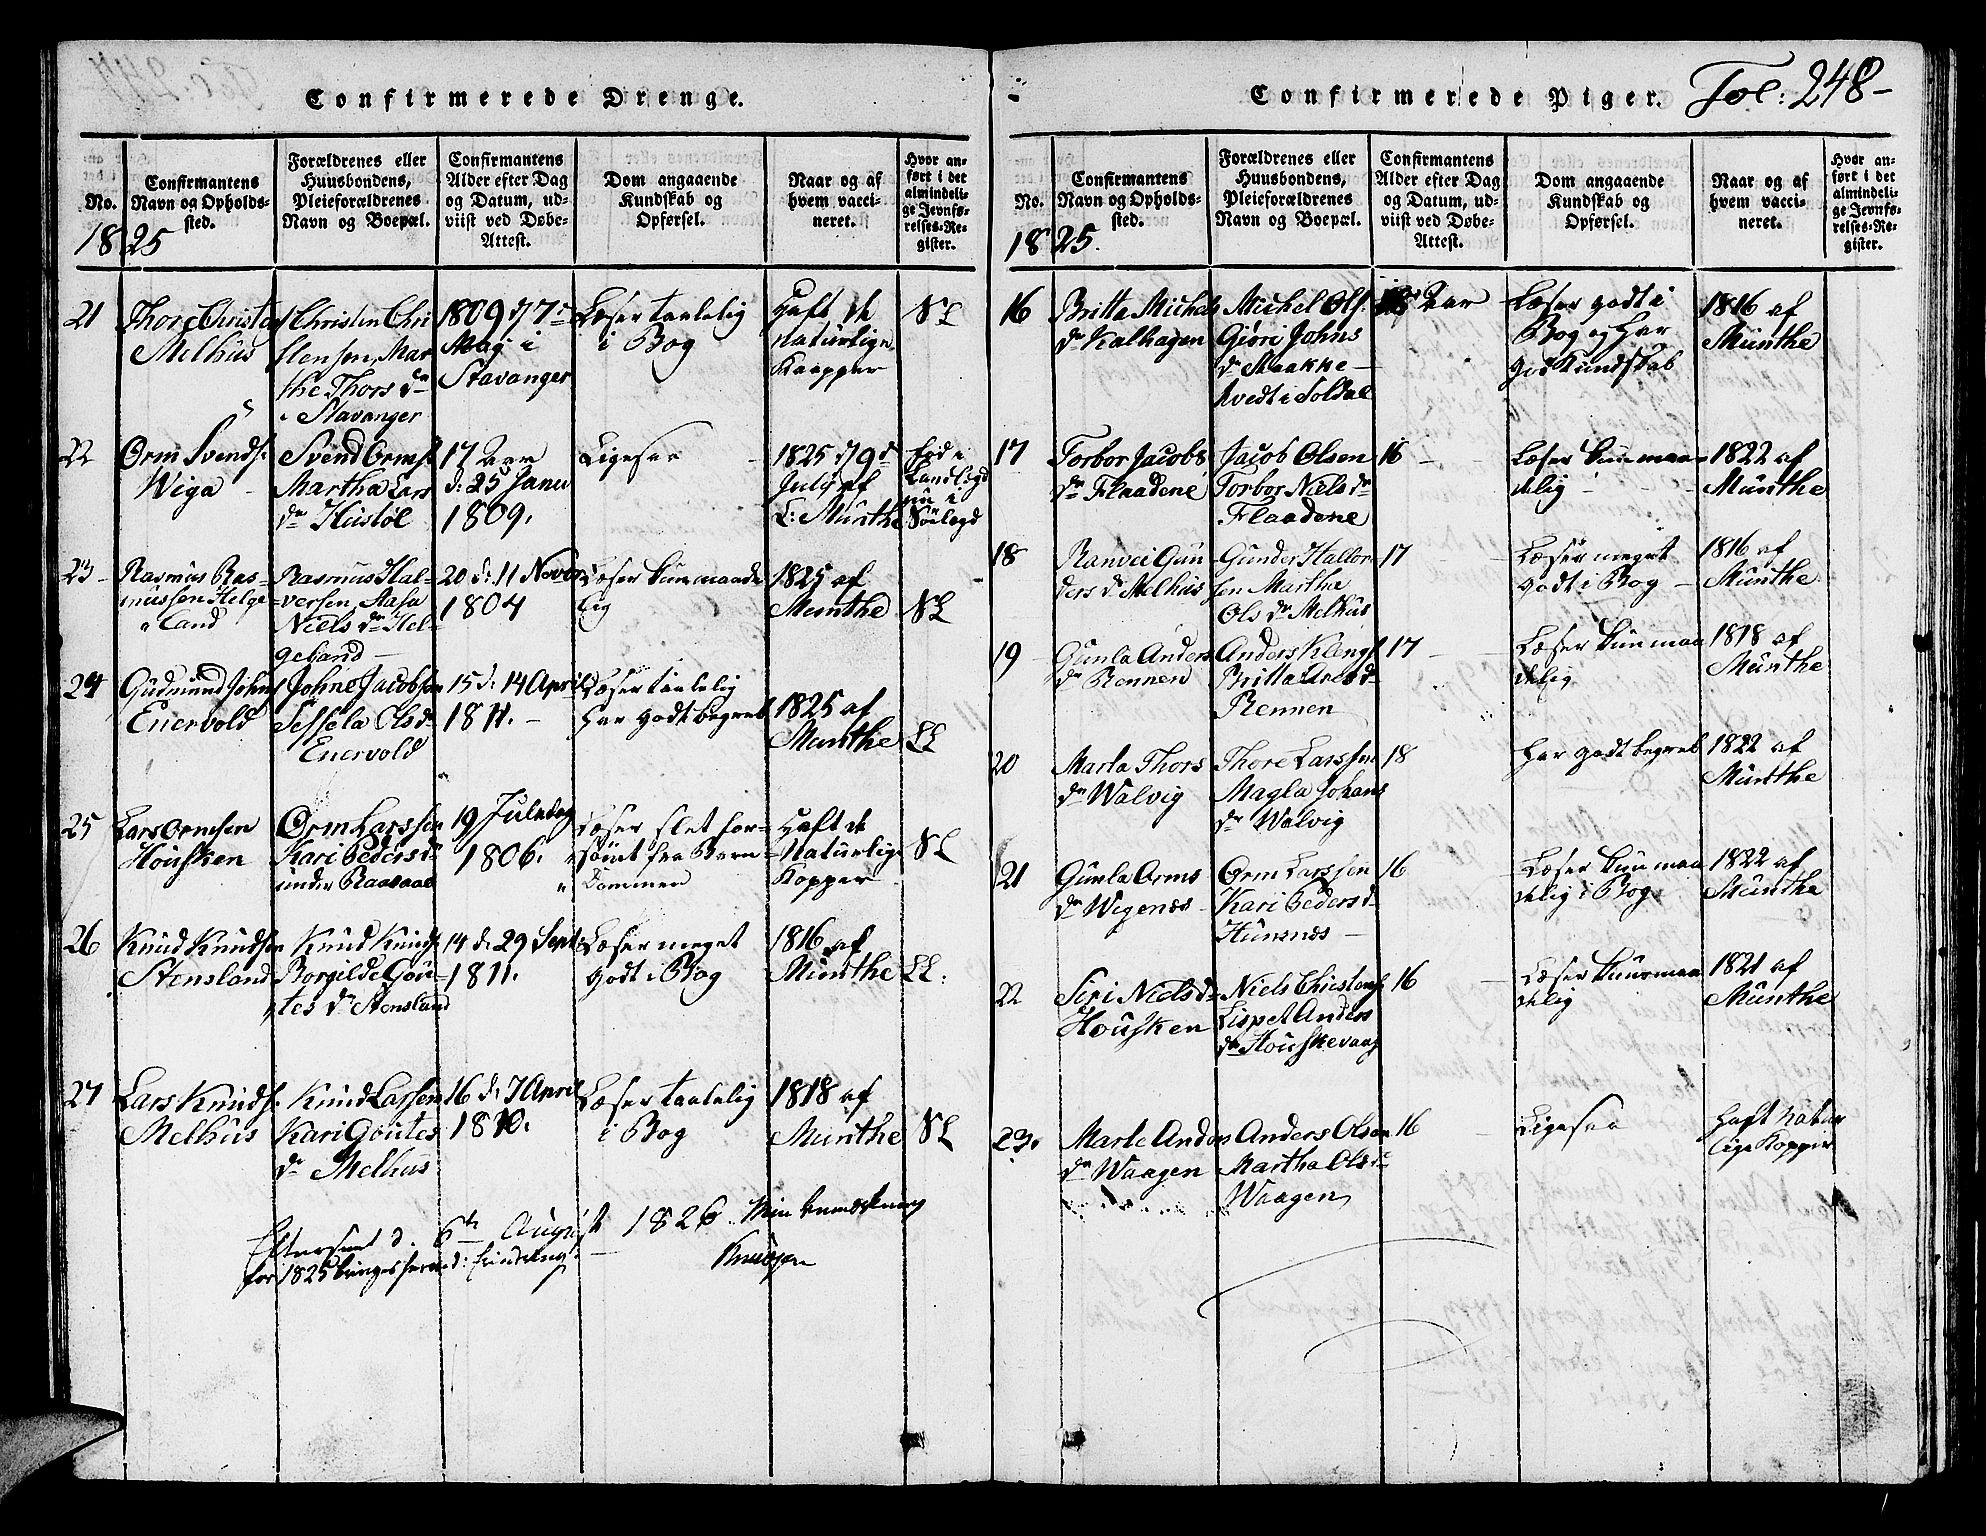 Confirmerede Drenge.
No.
Confirmantens
Navn og Opholds-
sted.
Forældrenes eller
Huusbondens,
Pleieforældrenes
Navn og Boepæl.
Confirmantens
Alder efter Dag
og Datum, ud-
viist ved Døbe-
Attest.
Dom angaaende
Kundskab og
Opførsel.
Naar og af
hvem vacci-
neret.
Hvor an-
ført i det
almindeli-
ge Jevnfø-
relses-Re-
gister.
1825
21
Thore Christens
Melhus
Christen Chri
stensen, Mar
the Thors dr
Stavanger
1809 d 7de
Maj i
Stavanger
Læser taalelig
i Bog
Haft de
naturlige
Kaapper
SL
22
Orm Svends.
Wiga
Svend Orms
Martha Lars
dr Hustøl
17 Aar
d: 25 Janu
1809.
Ligesaa
1825 d 9de
July af
L: Munthe
Landlægd
nu i
Søelægd
23
Rasmus Ras-
mussen Helge
Land
Rasmus Hal-
versen, Aasa
Niels dr Hel-
geland
20 d: 11 Novbr
1804
Læser kun maade
lig
1825 af
Munthe
SL
24
Gudmund Johns
Enervold
Johne Jacobsen
Sessela Ols dr
Enervold
15 d: 14 April
1811.
Læser taalelig
har godt begreb
1825 af
Munthe
LL
25
Lars Ormsen
Housken
Orm Larssen
Kari Peders dr
under Raasaae
19 Juledag
1806.
Læser slet for-
sømt fra Barn-
dommen
Haft de
Naturlige
Kopper
SL
26
Knud Knudsen
Stensland
Knud Knuds
Borgilde Gou-
tes dr Stensland
14 d: 29 Sept:
1811.
Læser meget
godt i Bog
1816 af
Munthe
LL:
27
Lars Knuds.
Melhus
Knud Larssen
Kari Goutes
dr Melhus
16 d: 7 April
1810.
Læser taalelig
i Bog
1818 af
Munthe
SL
Efterseet d. 6te August 1826. Min Anmærkning
for 1825
Knudsen
Confirmerede Piger. Fol: 248-
No.
Confirmantens
Navn og Opholds-
sted.
Forældrenes eller
Huusbondens,
Pleieforældrenes
Navn og Boepæl.
Confirmantens
Alder efter Dag
og Datum, ud-
viist ved Døbe-
Attest.
Dom angaaende
Kundskab og
Opførsel.
Naar og af
hvem vacci-
neret.
Hvor an-
ført i det
almindeli-
ge Jevnfø-
relses-Re-
gister.
1825.
16
Britta Michels
dr Kalhagen
Michel Ols.
Giøri Johns
dr Maakke-
tvedt i Soldal
Aar
Læser godt i
Bog og har
god Kundskab
1816 af
Munthe
17
Torbor Jacobs
dr Flaadene
Jacob Olsen
Torbor Niels dr
Flaadene
16
Læser kun maa
delig
1822 af
Munthe
18
Ranvei Gun
ders dr Melhus
Gunder Hallor
sen Martha
Ols dr Melhus
17
Læser meget
godt i Bog
1816 af
Munthe
19
Gunla Anders
dr Rennen
Anders Klengs
Britta Ands dr
Rennen
17
Læser kun maa
delig
1818 af
Munthe
20
Marta Thors
dr Walvig
Thore Larssen
Magla Johans
dr Walvig
18
har godt begreb
1822 af
Munthe
21
Gunla Orms
dr Wigenæs
Orm Larssen
Kari Peders dr
Hunsnæs
16
Læser kun maa
delig i Bog
1822 af
Munthe
22
Siri Niels dr
Housken
Niels Christens
Lispet Anders
dr Houskevaag
16
Læser kun maa
delig
1821 af
Munthe
23.
Marte Anders
dr Waagen
Anders Olsen
Martha Ols dr
Waagen
16
Ligesaa
haft Natur
lige Kopper